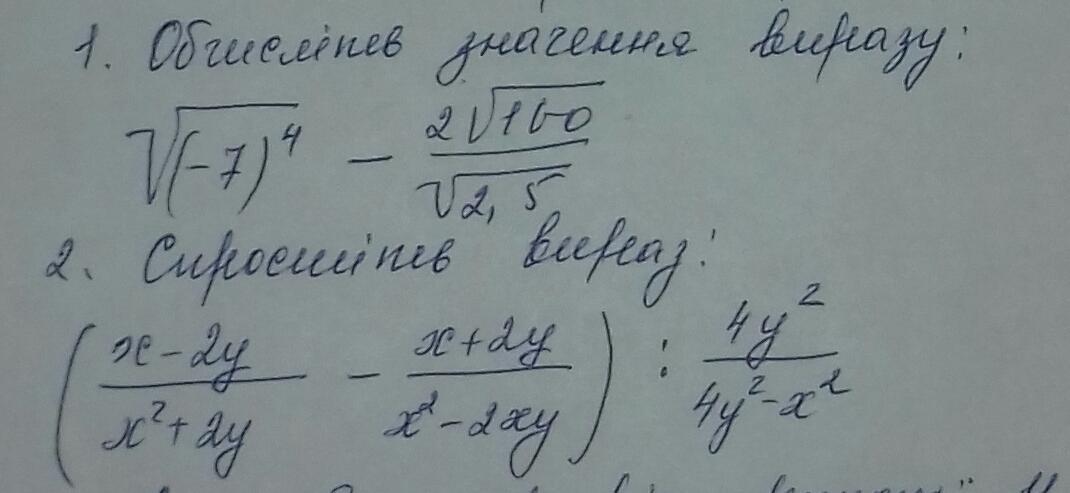 1. Обчисліть значення виразу:
√(-7)⁴ - 2√160 / √2,5
2. Спростіть вираз:
( x-2y / x²+2y - x+2y / x²-2xy ) : 4y² / 4y²-x²